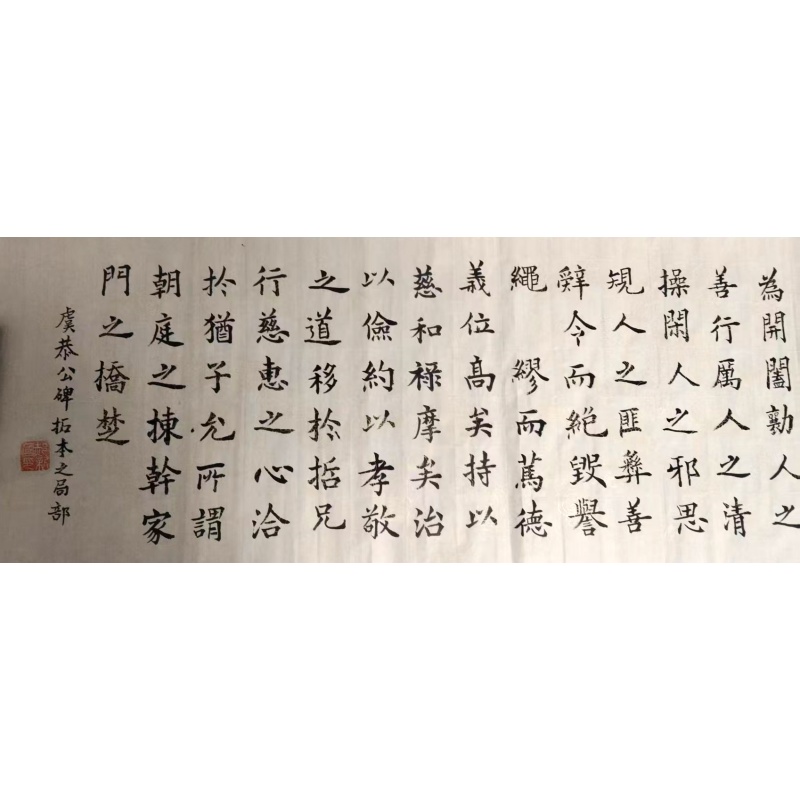 為開闔勸人之
善行厲人之清
操閑人之邪思
規人之匪彝善
辭令而絕毀譽
繩 繆而蔫德
義位高矣持以
慈和祿摩矣治
以儉約以孝敬
之道移於哲兄
行慈惠之心洽
於猶子允所謂
朝庭之棟幹家
門之橋楚
虞恭公碑拓本之局部